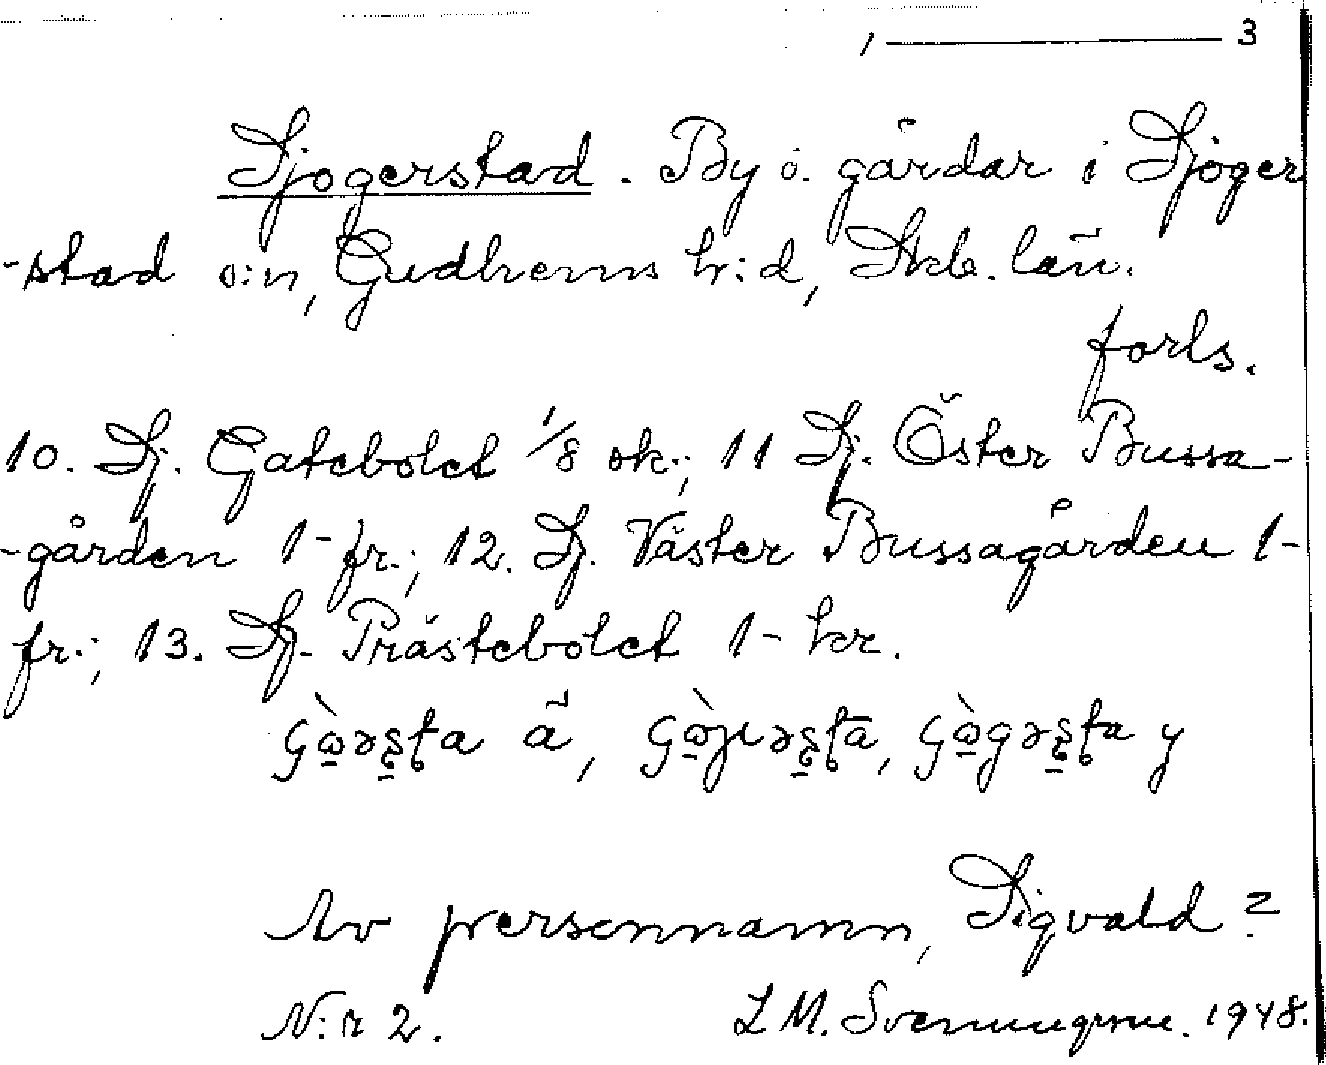 1 ——— 3
Sjogerstad. By o. gårdar i Sjöger
-stad s:n, Gudhems h:d, Skb. län.
forls.
10. Sj. Gatebolet 1/8 sk.; 11 Sj. Öster Bussa-
-gården 1- fr.; 12. Sj. Väster Bussagården 1-
fr.; 13. Sj. Prästebolet 1- kr.
Av personnamn, Sigvald?
N:r 2. L M. Svenungsson. 1948.